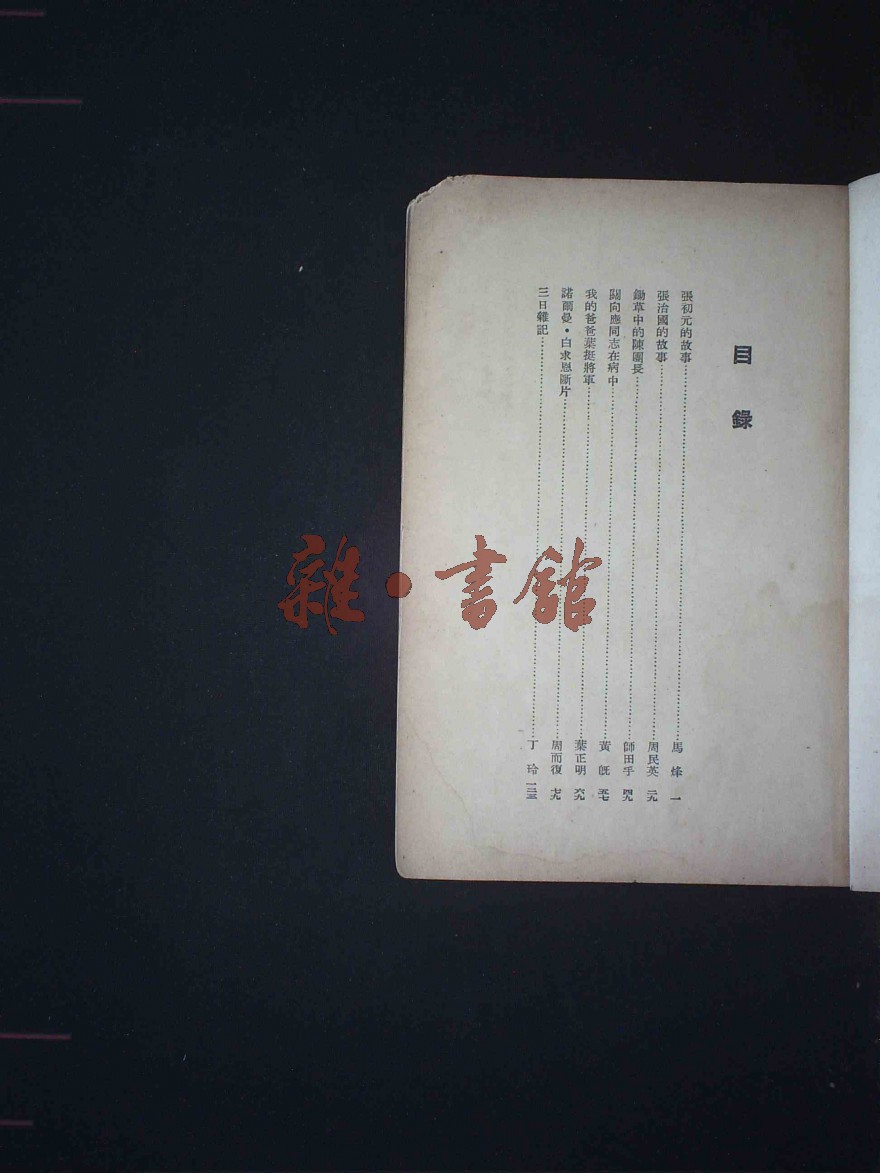 目錄
張初元的故事……馬烽 一
張治國的故事……周民英 二九
鋤草中的陳團長……師田手 四九
關向應同志在病中……黃既 五七
我的爸爸葉挺將軍……葉正明 六九
諾爾曼·白求恩斷片……周而復 七九
三日雜記……丁玲
雜·書館